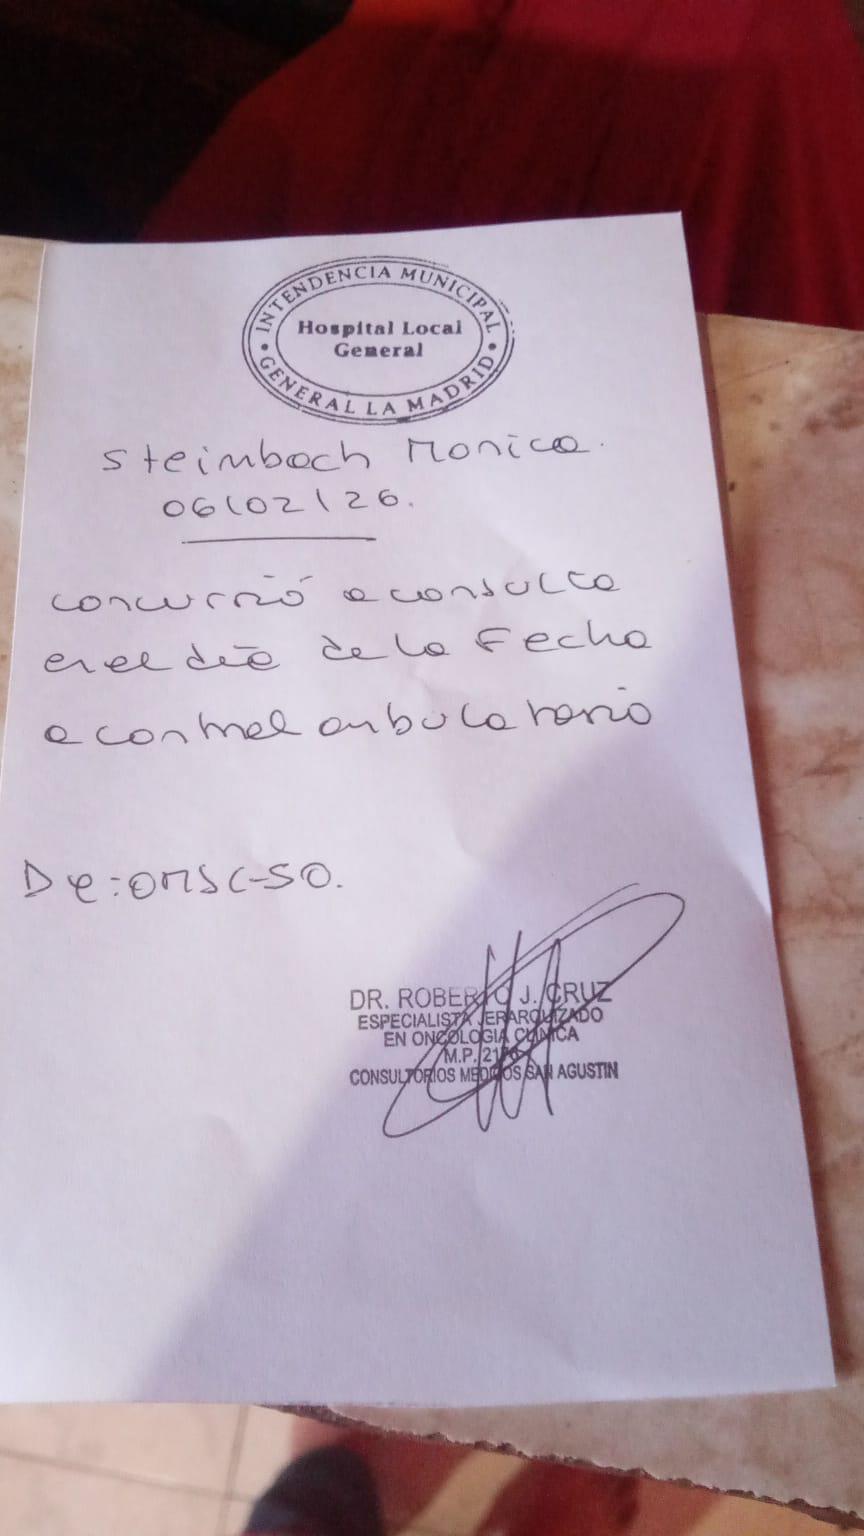 INTENDENCIA MUNICIPAL
Hospital Local
General
GENERAL LA MADRID
Steimbach Monica.
06/02/26.
concurrió a consulta
en el día de la Fecha
a control ambulatorio
DR. ROBERTO J. CRUZ
ESPECIALISTA JERARQUIZADO
EN ONCOLOGIA CLINICA
M.P.
CONSULTORIOS MEDICOS SAN AGUSTIN